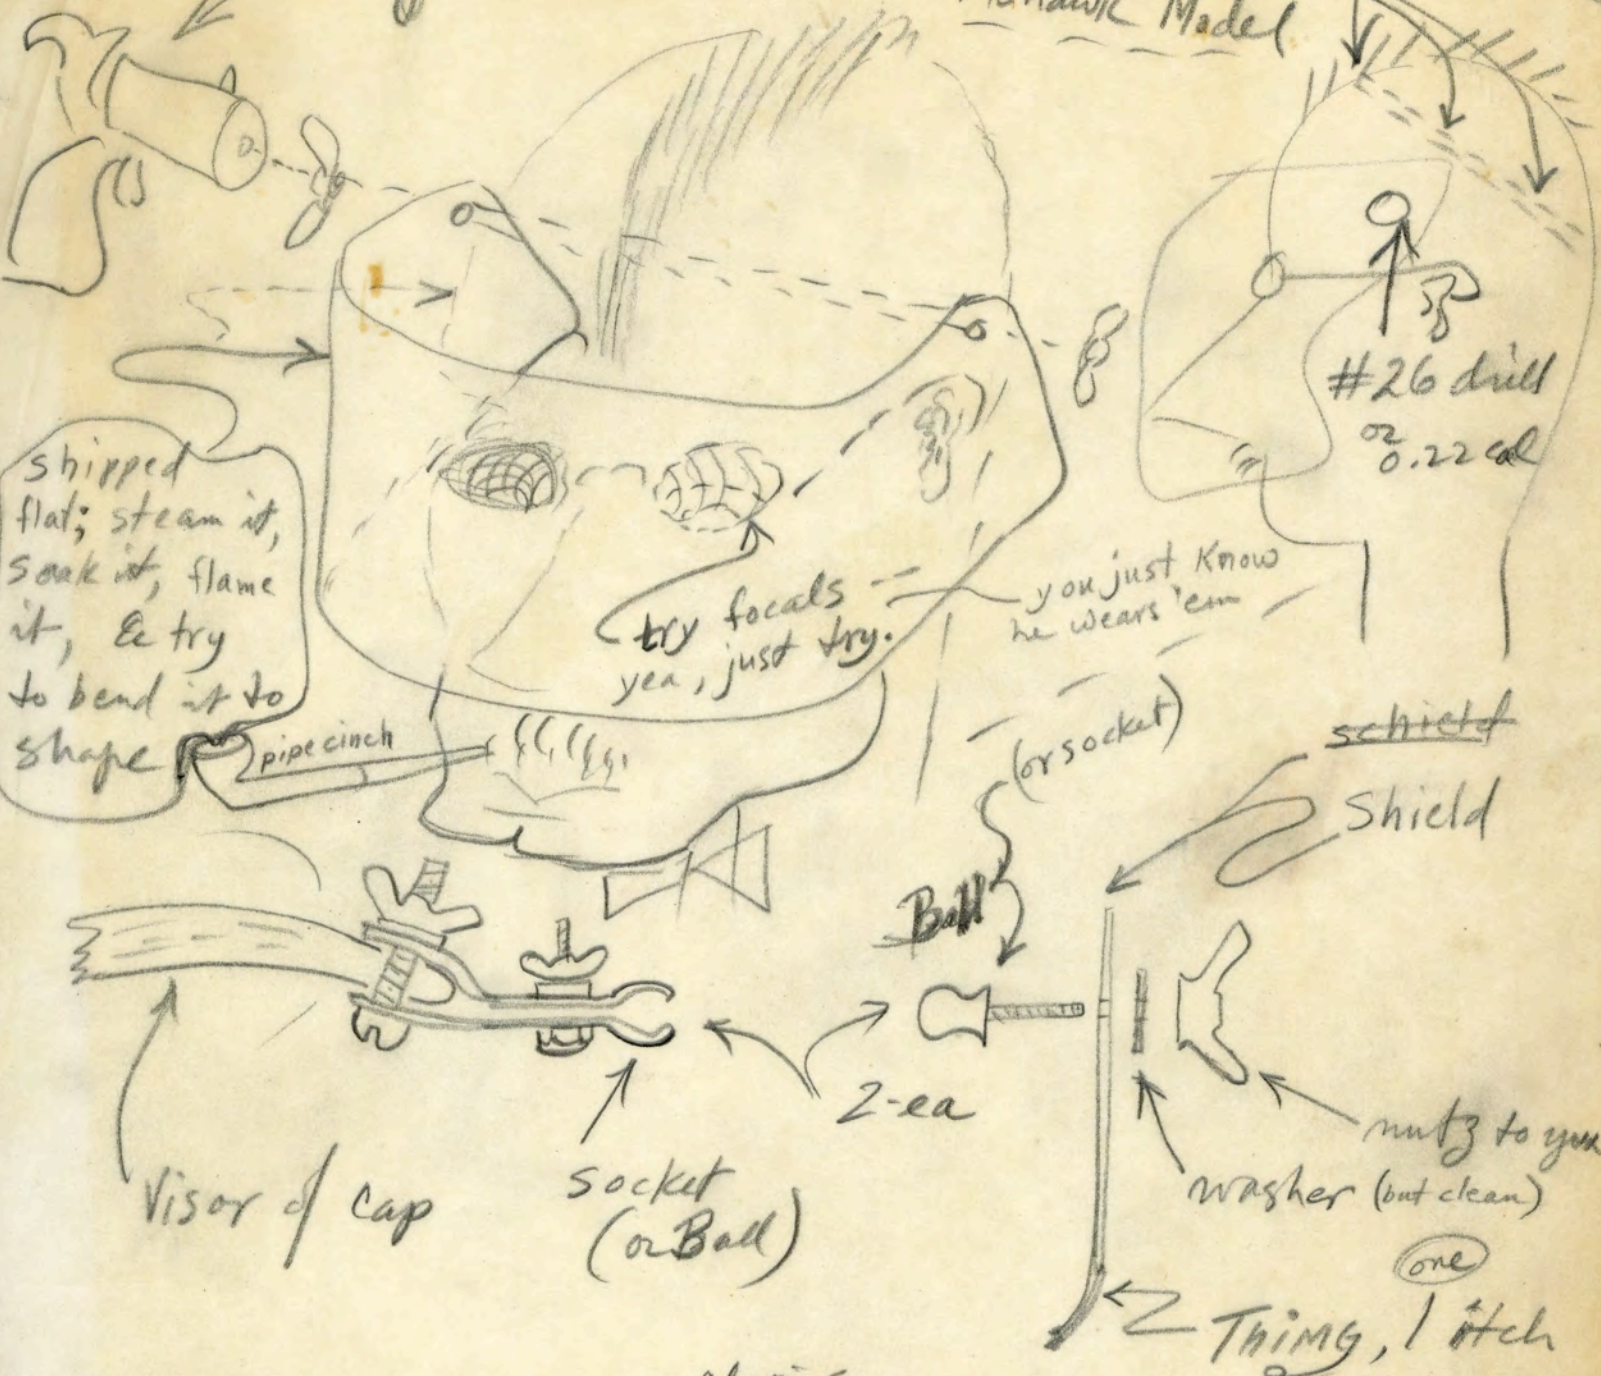 Mohawk Model
#26 drill
or
0.22 cal
shipped
flat; steam it,
soak it, flame
it, & try
to bend it to
shape
pipe cinch
try focals
yea, just try.
you just know
he wears 'em
(or socket)
Ball
schield
Shield
2-ea
Visor of cap
socket
(or Ball)
nutz to you
washer (but clean)
one
Thing, 1 itch